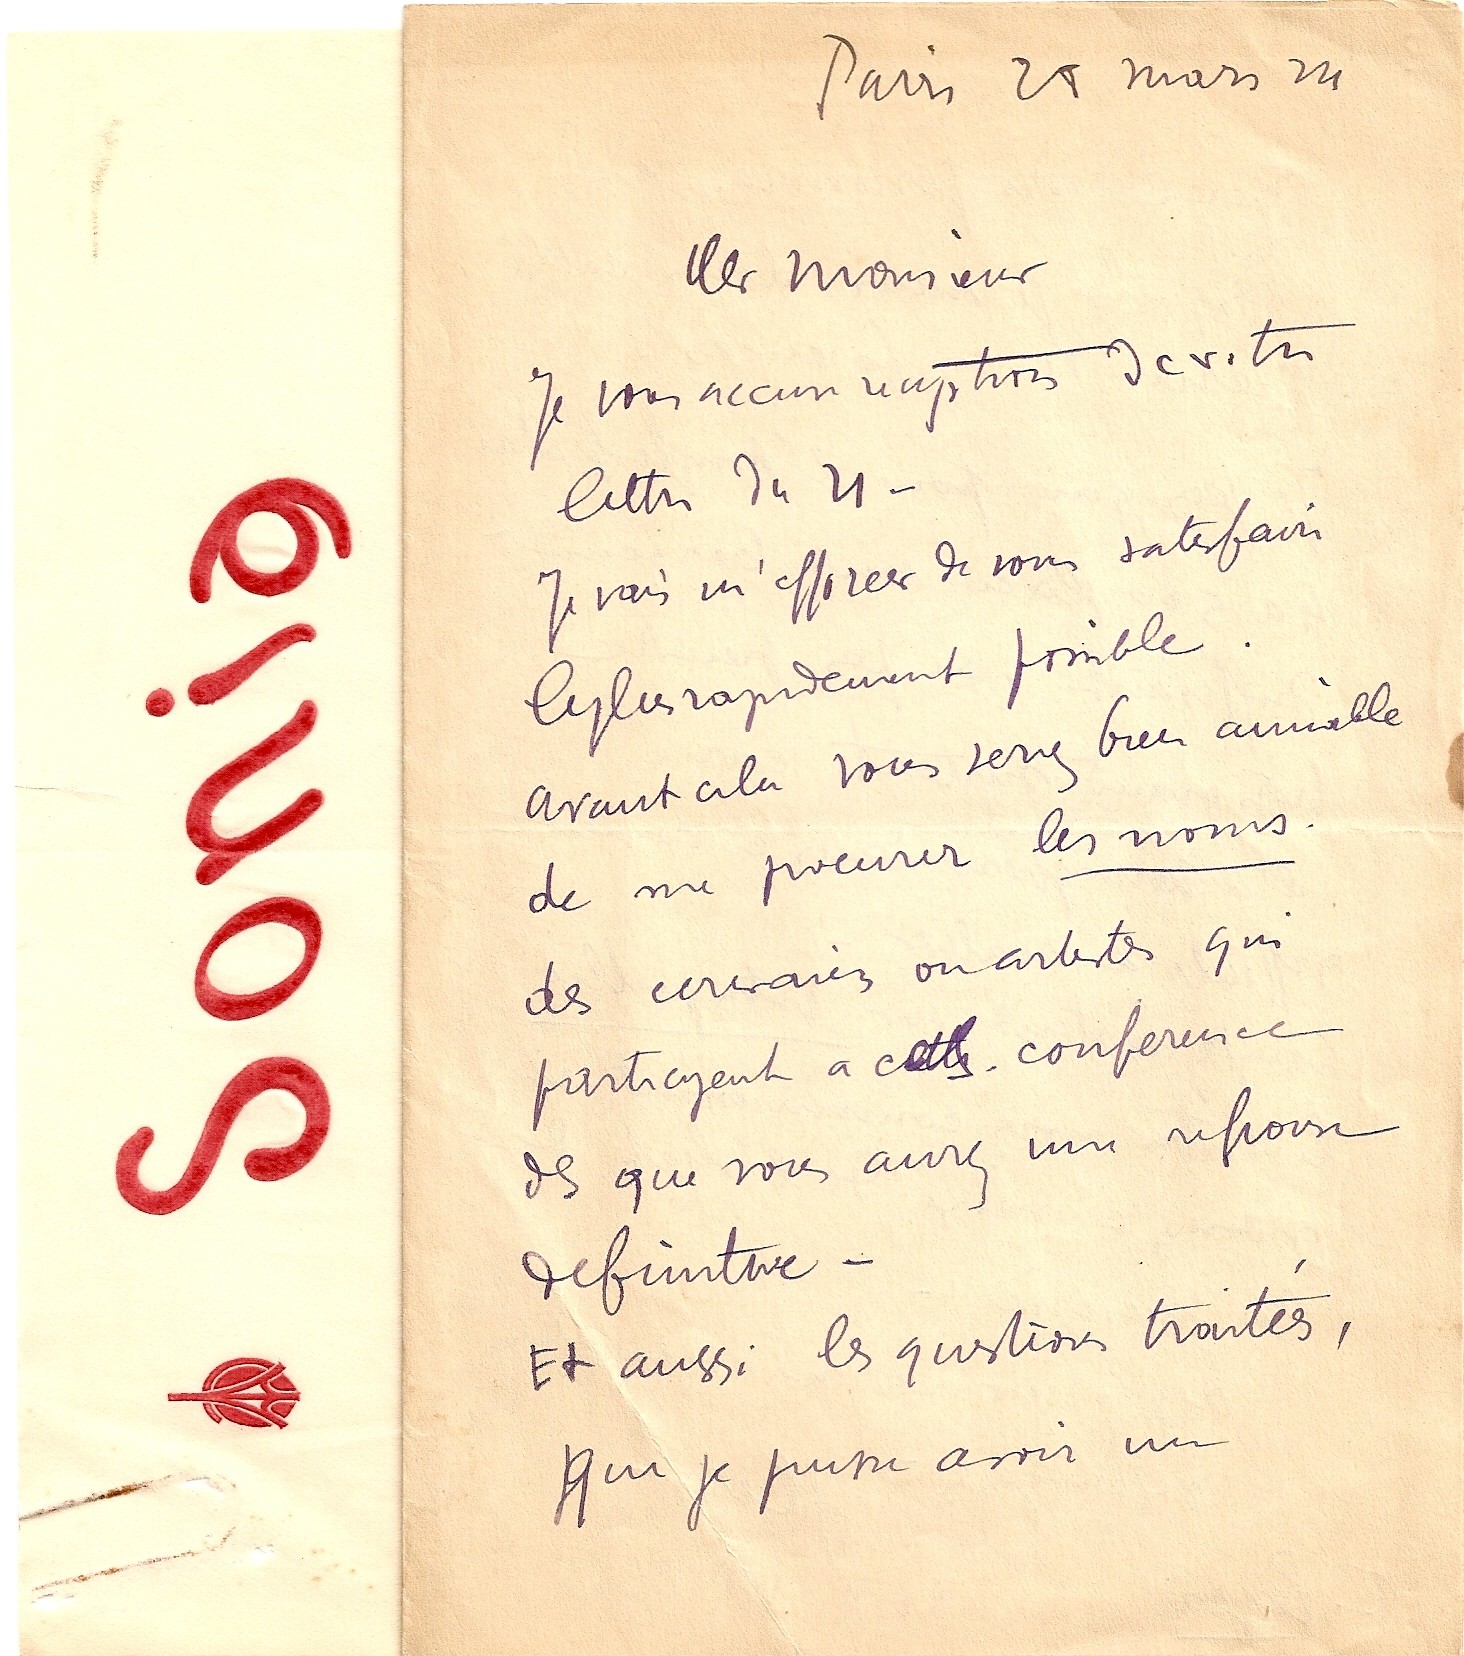 Sonia
Paris 28 mars
Cher Monsieur
Je vous accuse reception de votre
lettre du 21 -
Je vais m'efforcer de vous satisfaire
le plus rapidement possible.
avant cela vous serez bien aimable
de me procurer les noms.
des ecrivains ou artistes qui
participent a cette conference
des que vous aurez une reponse
definitive -
Et aussi les questions traités,
que je puisse avoir un